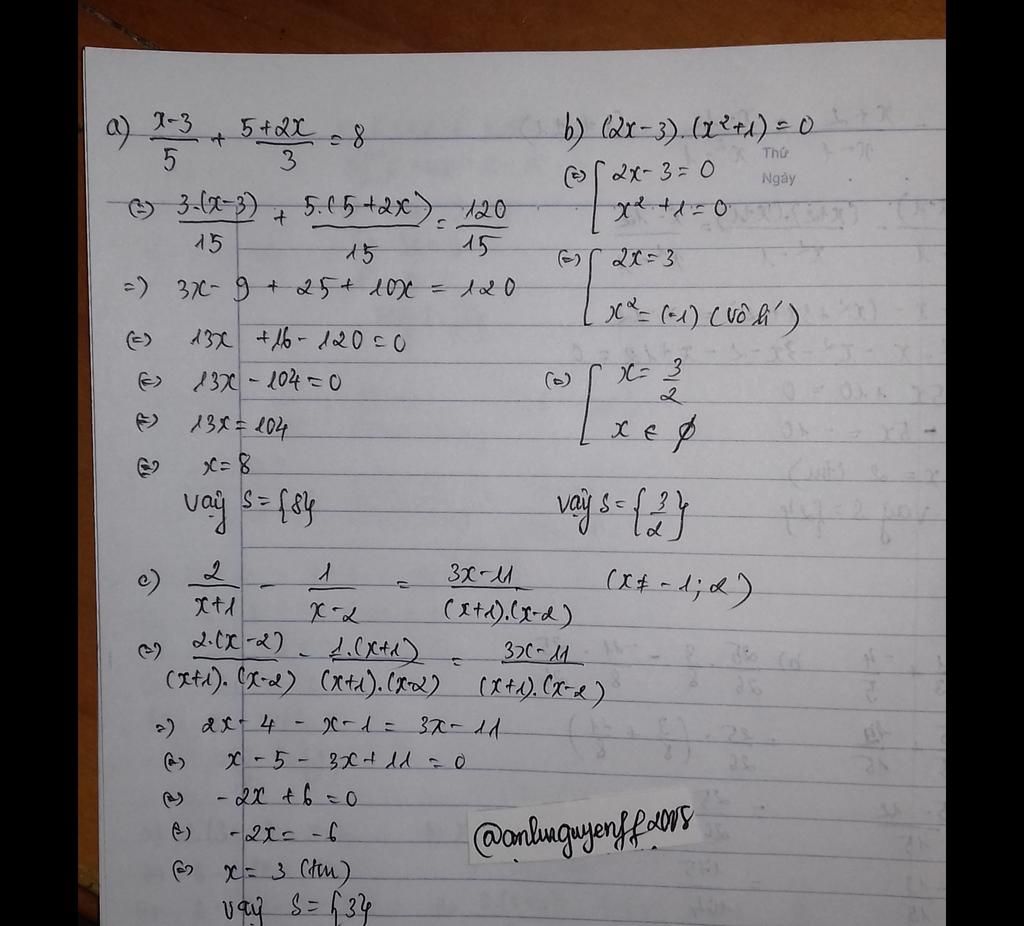 a) x-3/5 + 5+2x/3 = 8
(=) 3.(x-3)/15 + 5.(5+2x)/15 = 120/15
=) 3x - 9 + 25 + 10x = 120
(=) 13x + 16 - 120 = 0
(=) 13x - 104 = 0
(=) 13x = 104
(=) x = 8
Vậy S = {8}
b) (2x-3).(x²+1) = 0
Thứ
Ngày
(=) [ 2x - 3 = 0
x² + 1 = 0
(=) [ 2x = 3
x² = (-1) (vô lí)
(=) [ x = 3/2
x ∈ ∅
Vậy S = {3/2}
c) 2/x+1 - 1/x-2 = 3x-11/(x+1).(x-2) (x ≠ -1; 2)
(=) 2.(x-2)/(x+1).(x-2) - 1.(x+1)/(x+1).(x-2) = 3x-11/(x+1).(x-2)
=) 2x - 4 - x - 1 = 3x - 11
(=) x - 5 - 3x + 11 = 0
(=) -2x + 6 = 0
(=) -2x = -6
(=) x = 3 (tm)
Vậy S = {3}